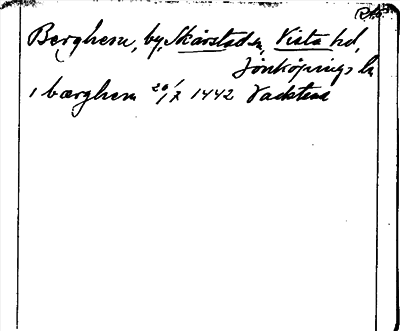 Berghem, by, Skärstad sn, Vista hd,
Jönköpings ln
i bærghem 20/7 1442 Vadstena